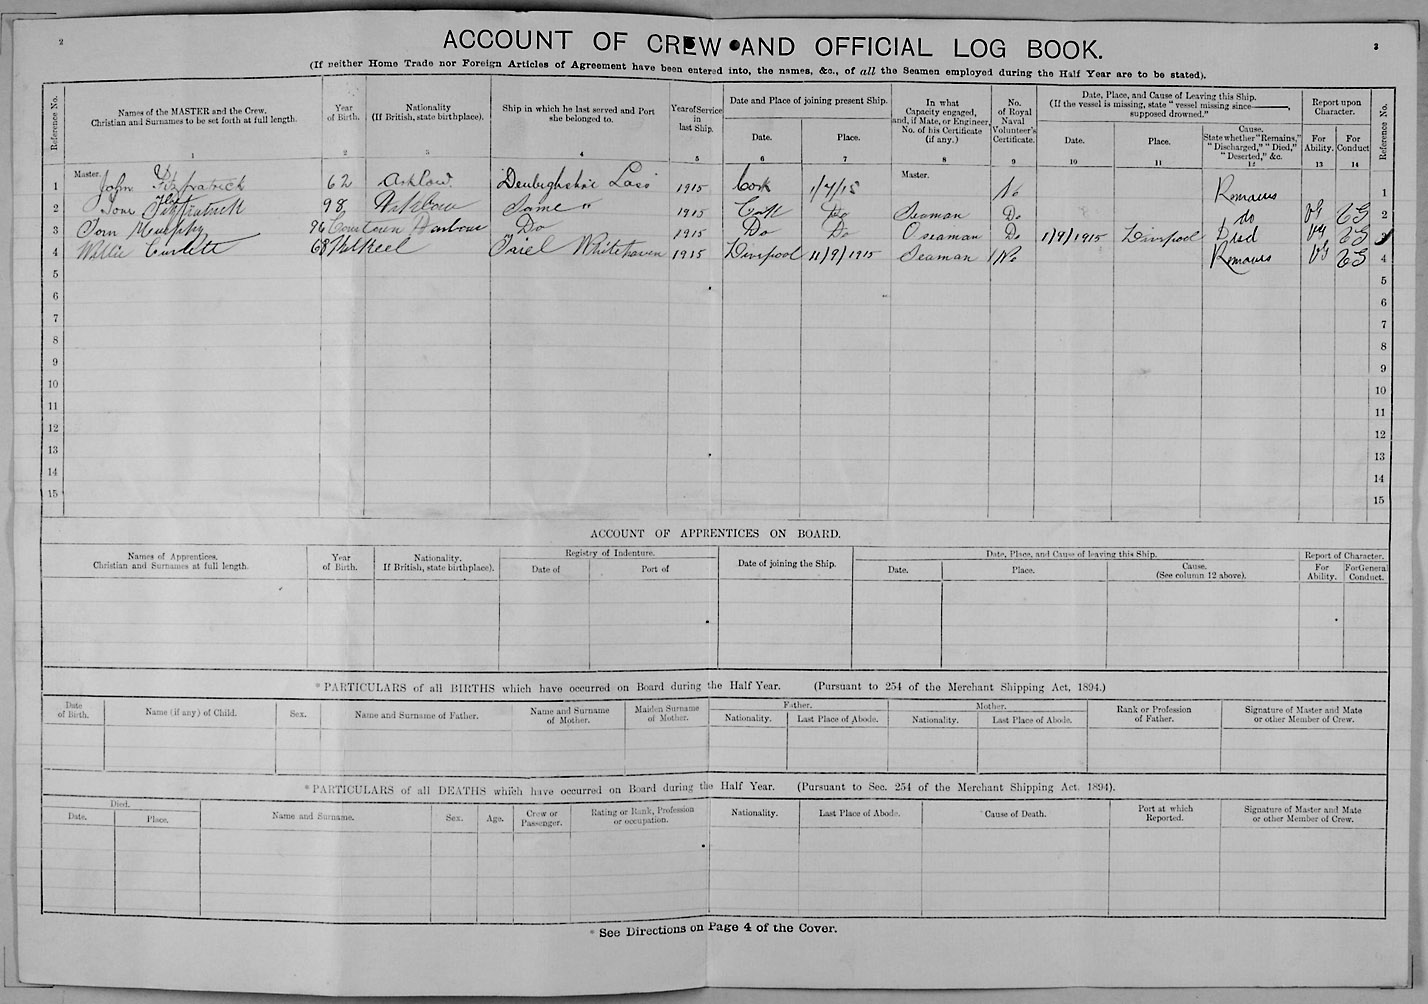 2
3
ACCOUNT OF CREW AND OFFICIAL LOG BOOK.
(If neither Home Trade nor Foreign Articles of Agreement have been entered into, the names, &c., of all the Seamen employed during the Half Year are to be stated).
Reference No.
Names of the MASTER and the Crew.
Christian and Surnames to be set forth at full length.
1
Year
of Birth.
2
Nationality
(If British, state birthplace).
3
Ship in which he last served and Port
she belonged to.
4
Year of Service
in
last Ship.
5
Date and Place of joining present Ship.
Date.
6
Place.
7
In what
Capacity engaged,
and, if Mate, or Engineer,
No. of his Certificate
(if any.)
8
No.
of Royal
Naval
Volunteer's
Certificate.
9
Date, Place, and Cause of Leaving this Ship.
(If the vessel is missing, state "vessel missing since ———,
supposed drowned."
Date.
10
Place.
11
Cause.
State whether "Remains,"
"Discharged," "Died,"
"Deserted," &c.
12
Report upon
Character.
For
Ability.
13
For
Conduct
14
Reference No.
1 Master. John Fitzpatrick 62 Arklow Denbighshire Lass 1915 Cork 1/7/15 Master. No Remains 1
2 Fitzpatrick 98 Arklow Same " 1915 Cork Do Seaman Do do VG VG 2
3 Tom Murphy 96 Courtown Harbour Do 1915 Do Do O seaman Do 1/9/1915 Liverpool VG VG 3
4 Willie 68 Peel Whitehaven 1915 Liverpool 11/9/1915 Seaman No Remains VG VG 4
5 5
6 6
7 7
8 8
9 9
10 10
11 11
12 12
13 13
14 14
15 15
ACCOUNT OF APPRENTICES ON BOARD.
Names of Apprentices.
Christian and Surnames at full length.
Year
of Birth.
Nationality.
If British, state birthplace).
Registry of Indenture.
Date of
Port of
Date of joining the Ship.
Date, Place, and Cause of leaving this Ship.
Date.
Place.
Cause.
(See column 12 above).
Report of Character.
For
Ability.
For General
Conduct.
*PARTICULARS of all BIRTHS which have occurred on Board during the Half Year. (Pursuant to 254 of the Merchant Shipping Act, 1894.)
Date
of Birth.
Name (if any) of Child.
Sex.
Name and Surname of Father.
Name and Surname
of Mother.
Maiden Surname
of Mother.
Father.
Nationality.
Last Place of Abode.
Mother.
Nationality.
Last Place of Abode.
Rank or Profession
of Father.
Signature of Master and Mate
or other Member of Crew.
*PARTICULARS of all DEATHS which have occurred on Board during the Half Year. (Pursuant to Sec. 254 of the Merchant Shipping Act, 1894).
Died.
Date.
Place.
Name and Surname.
Sex.
Age.
Crew or
Passenger.
Rating or Rank, Profession
or occupation.
Nationality.
Last Place of Abode.
Cause of Death.
Port at which
Reported.
Signature of Master and Mate
or other Member of Crew.
* See Directions on Page 4 of the Cover.